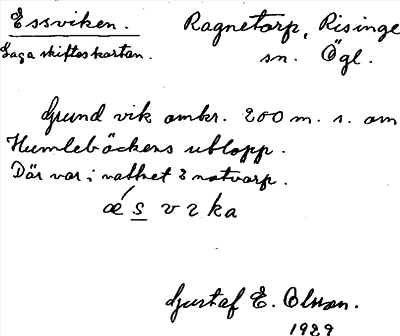 Essviken. Ragnetorp, Risinge
Laga skifteskartan. sn. Ögl.
Grund vik omkr. 200 m. s. om
Humlebäckens utlopp.
Där var i vattnet 2 notvarp.
ǽ s v ı ka
Gustaf E. Olsson.
1929